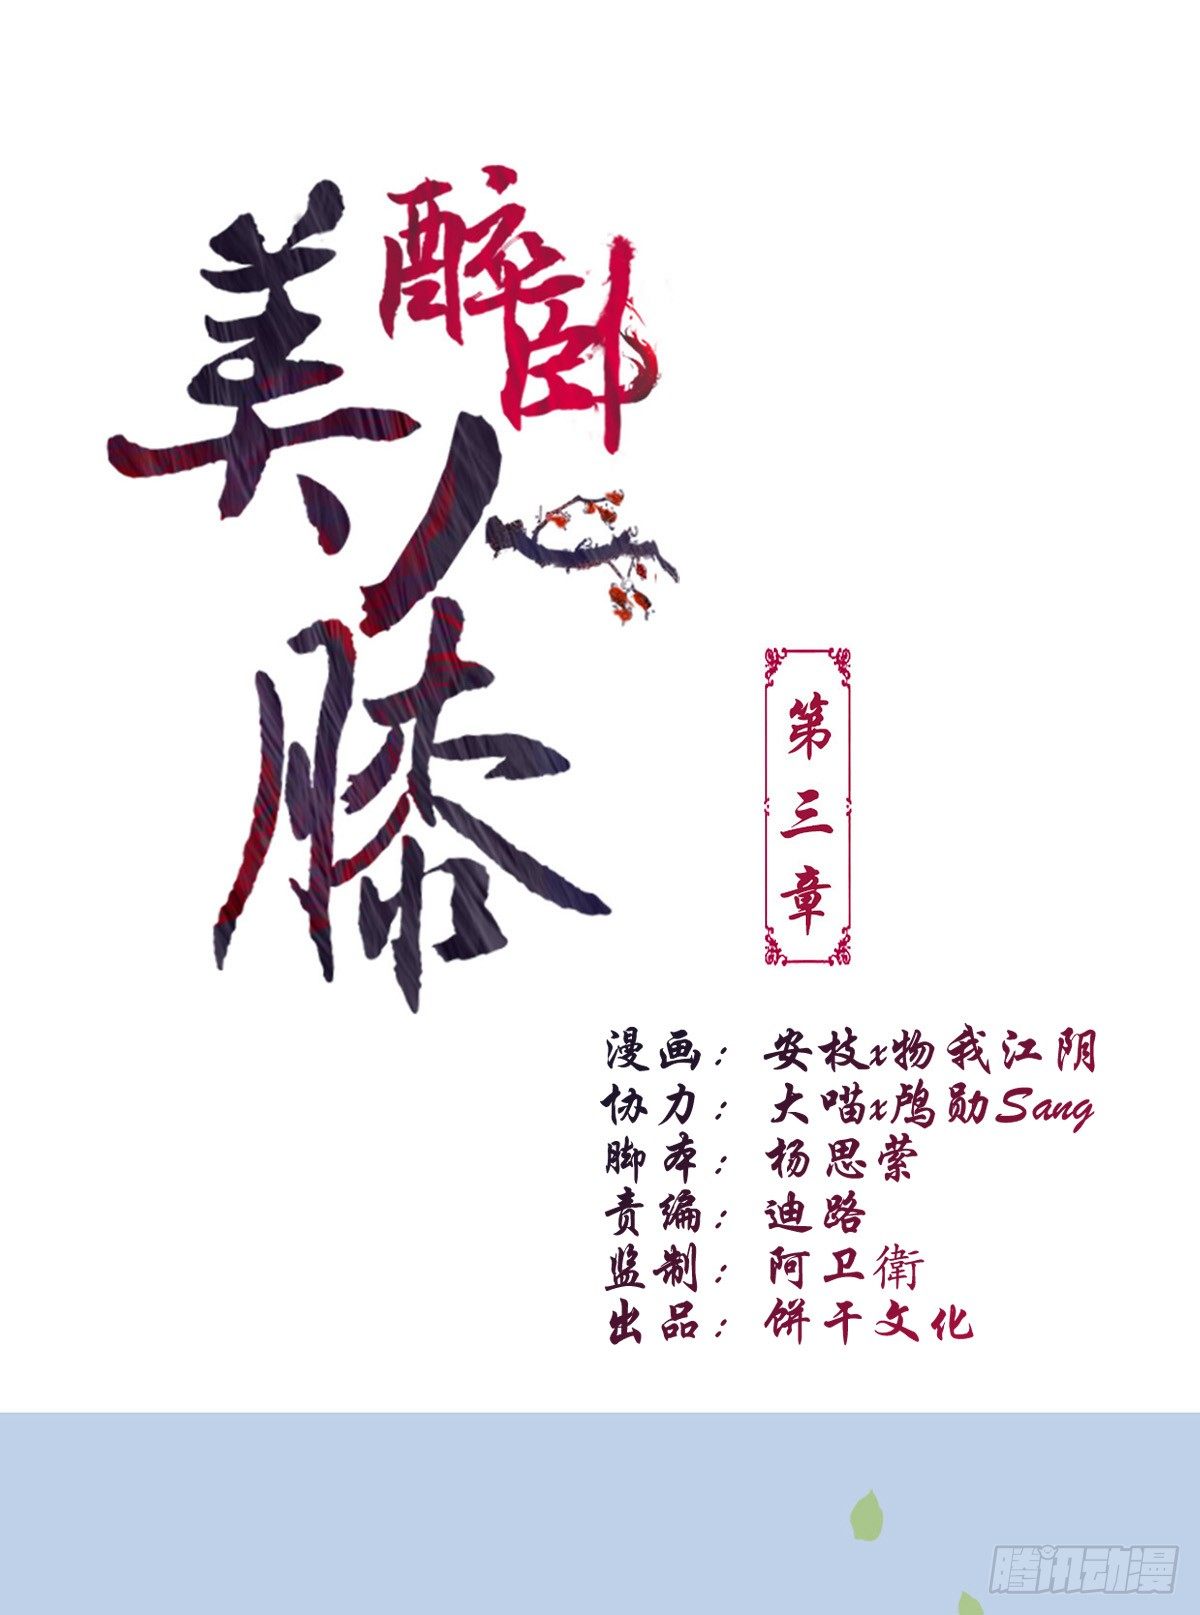 醉卧
美人膝
第三章
漫画：安枝x物我江阴
协力：大喵x鸬勋Sang
脚本：杨思萦
责编：迪路
监制：阿卫衛
出品：饼干文化
腾讯动漫